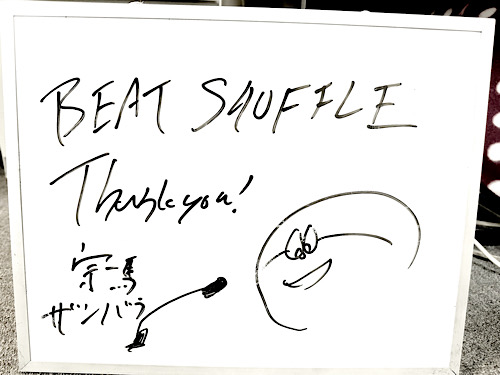 BEAT SHUFFLE
Thank you!
宗一馬
ザンバラ